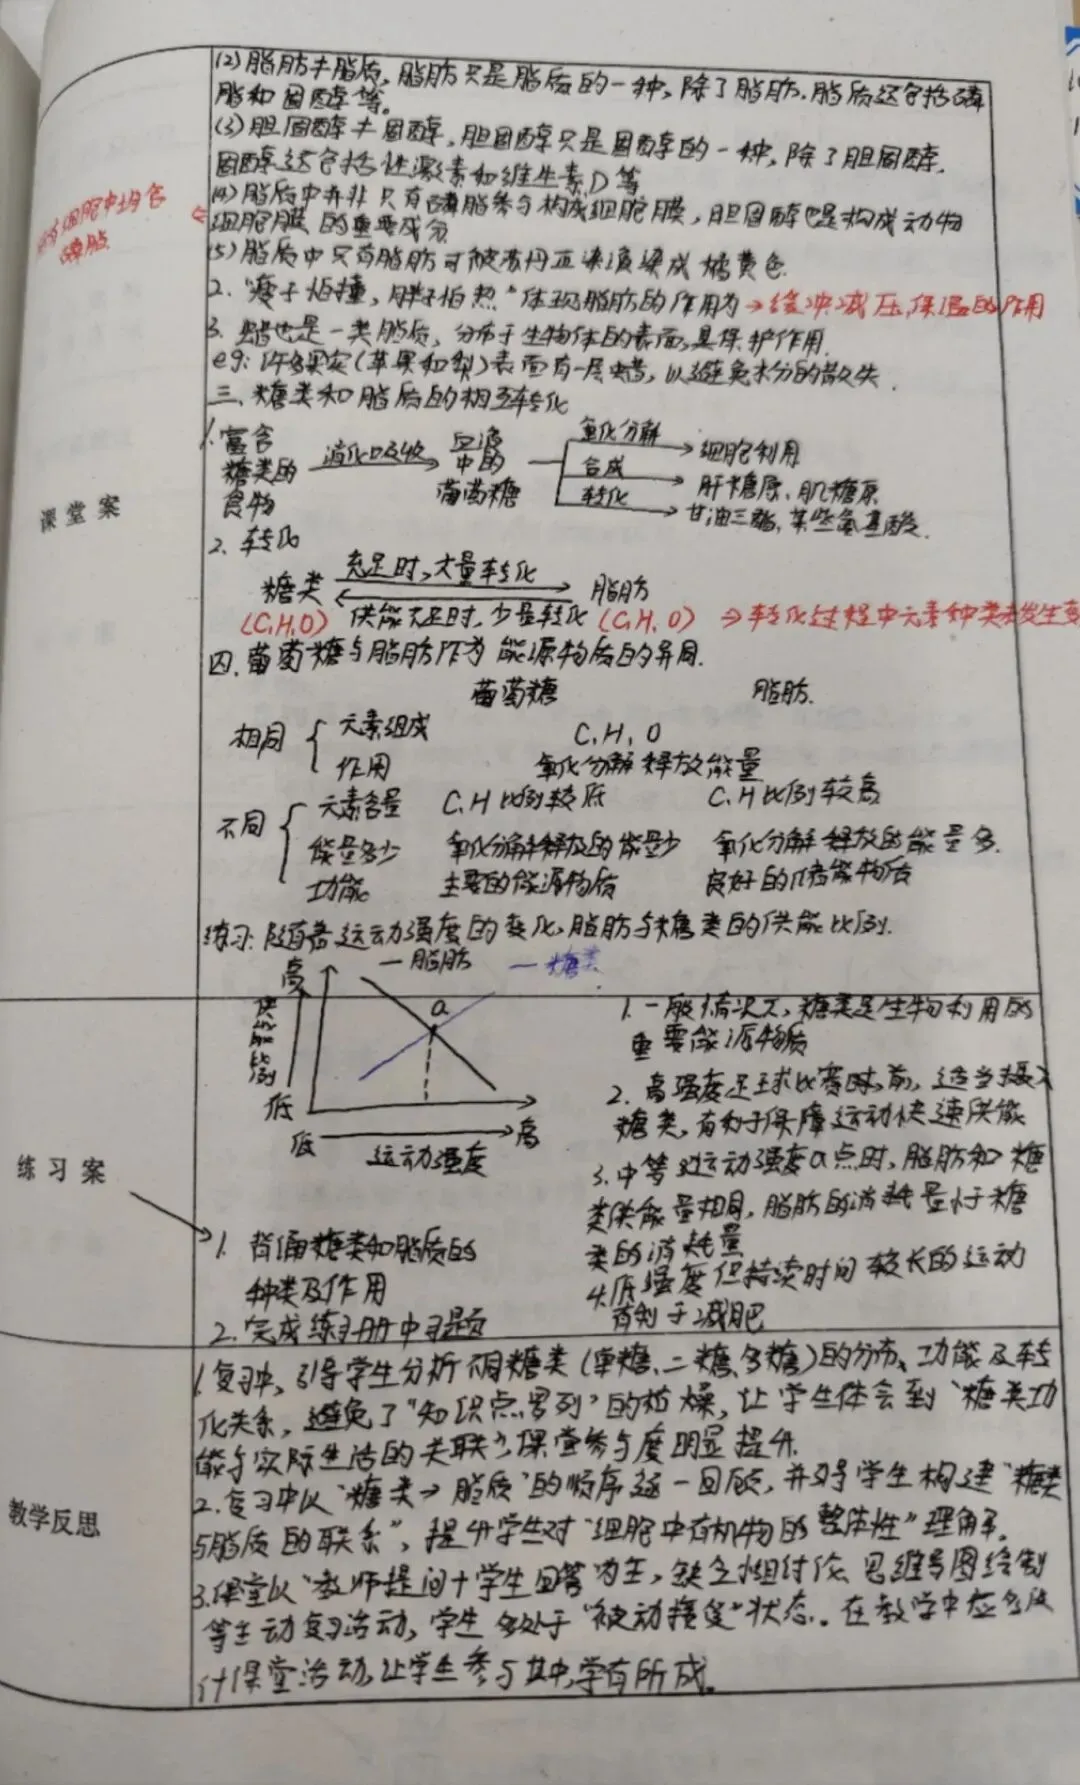 (2)脂肪≠脂质,脂肪只是脂质的一种,除了脂肪,脂质还包括磷
脂和固醇等。
(3)胆固醇≠固醇,胆固醇只是固醇的一种,除了胆固醇,
固醇还包括性激素和维生素D等
(4)脂质中并非只有磷脂参与构成细胞膜,胆固醇也是构成动物
细胞膜的重要成分
细胞中均含
磷脂
(5)脂质中只有脂肪可被苏丹Ⅲ染液染成橘黄色
2.“瘦子怕撞,胖子怕热”体现脂肪的作用为→缓冲减压,保温的作用
3.蜡也是一类脂质,分布于生物体的表面,具保护作用.
eg:许多果实(苹果和梨)表面有一层蜡,以避免水分的散失.
三.糖类和脂质的相互转化
1.富含糖类的食物 消化吸收→ 血液中的葡萄糖
氧化分解→细胞利用
合成→肝糖原、肌糖原
转化→甘油三酯,某些氨基酸.
课堂案
2.转化
充足时,大量转化
糖类 脂肪
(C,H,O) 供能不足时,少量转化 (C,H,O) ⇒转化过程中元素种类未发生变
四.葡萄糖与脂肪作为能源物质的异同.
葡萄糖 脂肪.
相同 { 元素组成 C,H,O
作用 氧化分解释放能量
不同 { 元素含量 C,H比例较低 C,H比例较高
能量多少 氧化分解释放的能量少 氧化分解释放的能量多.
功能 主要的能源物质 良好的储能物质
练习:随着运动强度的变化,脂肪与糖类的供能比例.
—脂肪 —糖类
高
供能比例
低
a
低 → 高
运动强度
1.一般情况下,糖类是生物利用的
重要能源物质
2.高强度足球比赛时,前,适当摄入
糖类,有利于保障运动快速供能
3.中等运动强度a点时,脂肪和糖
类供能量相同,脂肪的消耗量小于糖
类的消耗量
4.低强度但持续时间较长的运动
有利于减肥
练习案
1.背诵糖类和脂质的
种类及作用
2.完成练习册中习题
1.复习中,引导学生分析不同糖类(单糖、二糖、多糖)的分布、功能及转
化关系,避免了“知识点罗列”的枯燥,让学生体会到“糖类功
能与实际生活的关联”,课堂参与度明显提升.
2.复习中以“糖类→脂质”的顺序逐一回顾,并引导学生构建“糖类
与脂质的联系”,提升学生对“细胞中有机物的整体性”理解.
教学反思
3.课堂以“教师提问+学生回答”为主,缺乏小组讨论、思维导图绘制
等主动复习活动,学生多处于“被动接受”状态.在教学中应多设
计课堂活动,让学生参与其中,学有所成。